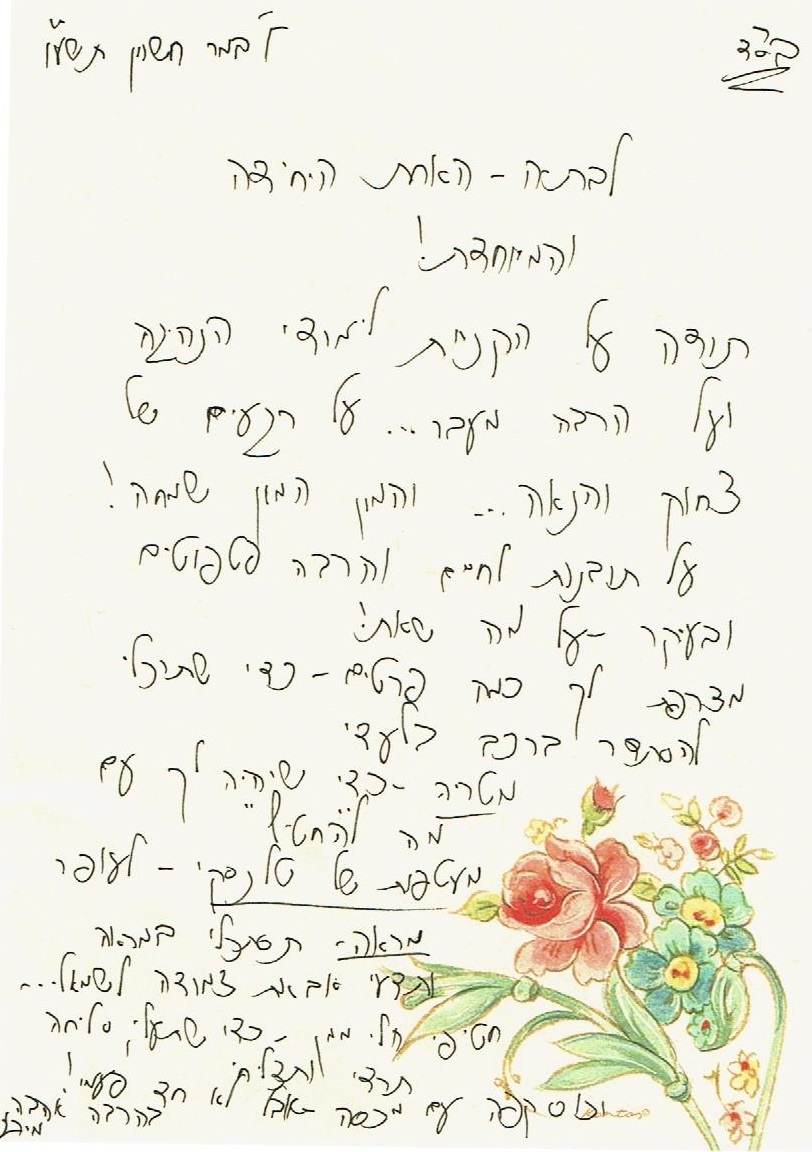 בס"ד
ז' במר חשוון תשע"ו
לבתאה - האחת היחידה
והמיוחדת!
תודה על הקניית לימודי הנהיגה
ועל הרבה מעבר... על רגעים של
צחוק והנאה... והמון המון שמחה!
על תובנות לחיים והרבה פטפוטים
ובעיקר - על מה שאת!
מצרפת לך כמה פרטים - כדי שתוכלי
להסתדר ברכב בלעדי
מטריה - כדי שיהיה לך עם
מה "להחטיף"
מעטפות של טלנסקי - לעופר
מראה - תסתכלי במראה
ותדעי אם את צמודה לשמאל...
חטיפי חלי ממן - כדי שתעלי סליחה
תרדי ותצליחי!
וכוס קפה עם מכסה - אבל לא חד פעמי!
בהרבה אהבה